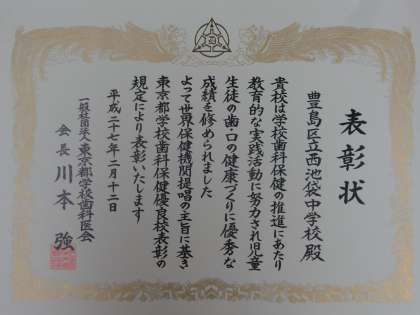 表彰状
豊島区立西池袋中学校 殿
貴校は学校歯科保健の推進にあたり
教育的な実践活動に努力され児童
生徒の歯・口の健康づくりに優秀な
成績を修められました
よって世界保健機関提唱の主旨に基き
東京都学校歯科保健優良校表彰の
規定により表彰いたします
平成二十七年二月十二日
一般社団法人東京都学校歯科医会
会長 川本 強